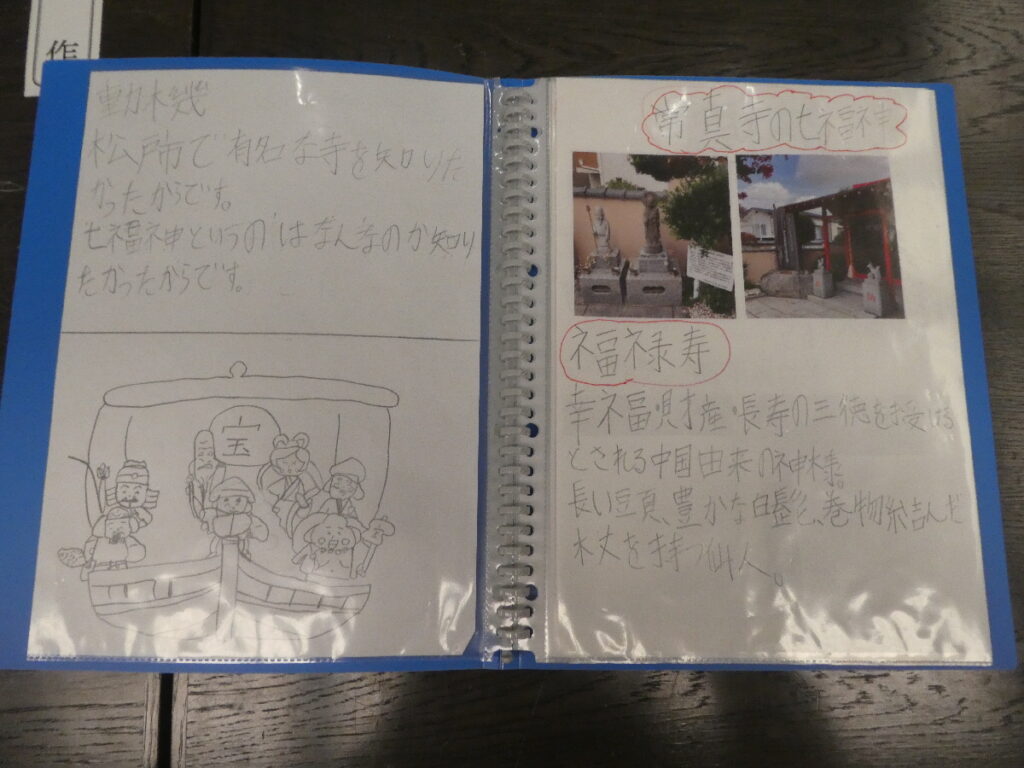 作
動機
松戸市で有名な寺を知りた
かったからです。
七福神というのはなんなのか知り
たかったからです。
宝
常真寺の七福神
福禄寿
幸福・財産・長寿の三徳を授ける
とされる中国由来の神様。
長い頭、豊かな白髭、巻物結んだ
杖を持つ仙人。